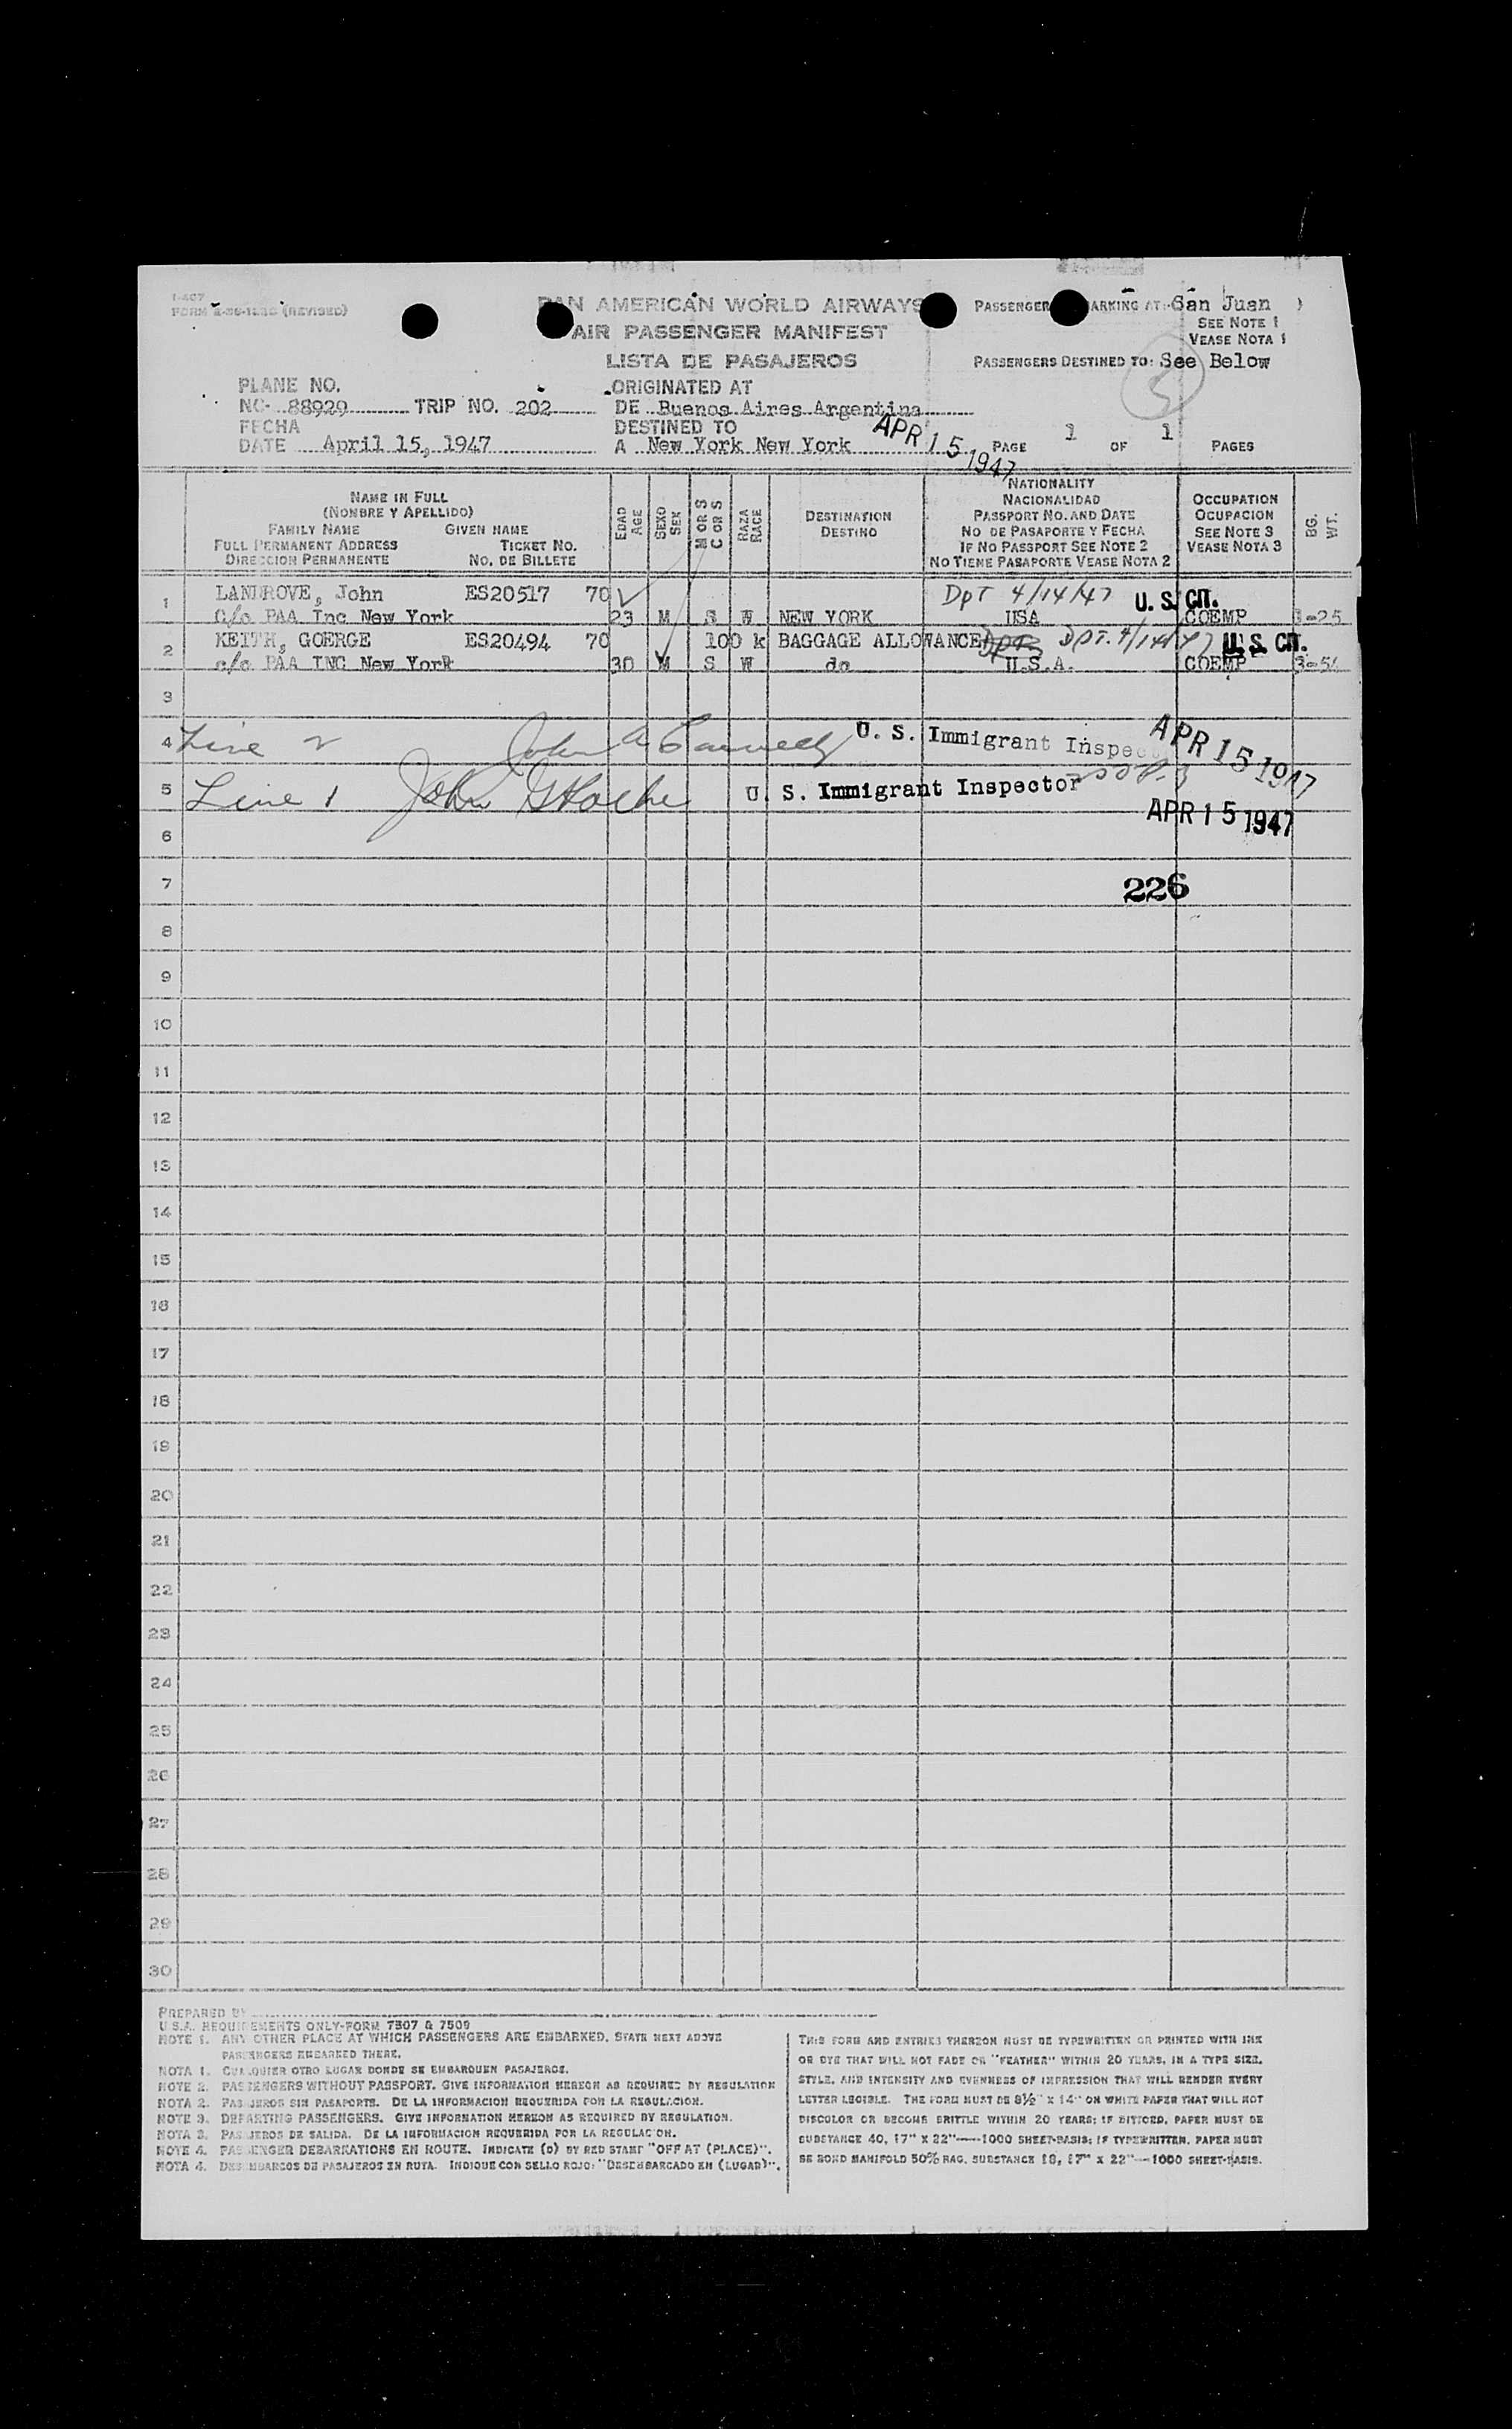 I-407
FORM (REVISED)
PAN AMERICAN WORLD AIRWAYS
AIR PASSENGER MANIFEST
LISTA DE PASAJEROS
PASSENGER ARKING AT: San Juan
SEE NOTE 1
VEASE NOTA 1
PASSENGERS DESTINED TO: See Below
5
PLANE NO.
NC- 88929 TRIP NO. 202
FECHA
DATE April 15, 1947
ORIGINATED AT
DE Buenos Aires Argentina
DESTINED TO
A New York New York
APR 15 1947
PAGE 1 OF 1 PAGES
NAME IN FULL
(NONBRE Y APELLIDO)
FAMILY NAME GIVEN NAME
FULL PERMANENT ADDRESS TICKET NO.
DIRECCION PERMANENTE NO. DE BILLETE
EDAD
AGE
SEXO
SEX
M OR S
C OR S
RAZA
RACE
DESTINATION
DESTINO
NATIONALITY
NACIONALIDAD
PASSPORT NO. AND DATE
NO DE PASAPORTE Y FECHA
IF NO PASSPORT SEE NOTE 2
NO TIENE PASAPORTE VEASE NOTA 2
OCCUPATION
OCUPACION
SEE NOTE 3
VEASE NOTA 3
BG.
WT.
1 LANDROVE, John ES20517 70 DpT 4/14/47 U.S. CIT.
C/o PAA Inc New York 23 M S W NEW YORK USA COEMP 3-25
2 KEITH, GOERGE ES20494 70 100 k BAGGAGE ALLOWANCE DPT. 4/14/47 U.S. CIT.
c/o PAA INC New York 30 M S W do U.S.A. COEMP
3
4 Line 2 John U. S. Immigrant Inspec APR 15 1947
5 Line 1 John U. S. Immigrant Inspector
APR 15 1947
6
7 226
8
9
10
11
12
13
14
15
16
17
18
19
20
21
22
23
24
25
26
27
28
29
30
PREPARED BY
U.S.A. REQUIREMENTS ONLY-FORM 7507 & 7509
NOTE 1. ANY OTHER PLACE AT WHICH PASSENGERS ARE EMBARKED. STATE NEXT ABOVE
PASSENGERS EMBARKED THERE.
NOTA 1. CUALQUIER OTRO LUGAR DONDE SE EMBARQUEN PASAJEROS.
NOTE 2. PASSENGERS WITHOUT PASSPORT. GIVE INFORMATION HEREON AS REQUIRED BY REGULATION
NOTA 2. PASAJEROS SIN PASAPORTE. DE LA INFORMACION REQUERIDA POR LA REGULACION.
NOTE 3. DEPARTING PASSENGERS. GIVE INFORMATION HEREON AS REQUIRED BY REGULATION.
NOTA 3. PASAJEROS DE SALIDA. DE LA INFORMACION REQUERIDA POR LA REGULACION.
NOTE 4. PASSENGER DEBARKATIONS EN ROUTE. INDICATE (D) BY RED STAMP "OFF AT (PLACE)".
NOTA 4. DESEMBARCOS DE PASAJEROS EN RUTA. INDIQUE CON SELLO ROJO: "DESEMBARCADO EN (LUGAR)".
THIS FORM AND ENTRIES THEREON MUST BE TYPEWRITTEN OR PRINTED WITH INK
OR DYE THAT WILL NOT FADE OR "FEATHER" WITHIN 20 YEARS, IN A TYPE SIZE,
STYLE, AND INTENSITY AND EVENNESS OF IMPRESSION THAT WILL RENDER EVERY
LETTER LEGIBLE. THE FORM MUST BE 8½" X 14" ON WHITE PAPER THAT WILL NOT
DISCOLOR OR BECOME BRITTLE WITHIN 20 YEARS; IF DITTOED, PAPER MUST BE
SUBSTANCE 40, 17" X 22"—1000 SHEET-BASIS; IF TYPEWRITTEN, PAPER MUST
BE BOND MANIFOLD 50% RAG, SUBSTANCE 18, 17" X 22"—1000 SHEET-BASIS.